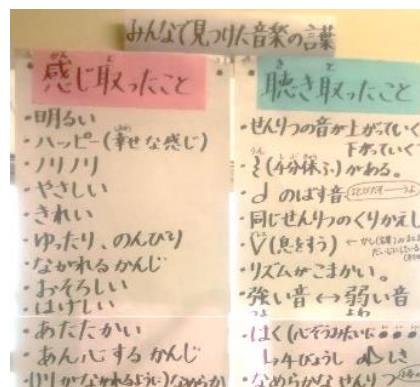 みんなで見つけた音楽の言葉
感じ取ったこと
・明るい
・ハッピー(幸せな感じ)
・ノリノリ
・やさしい
・きれい
・ゆったり、のんびり
・ながれるかんじ
・おそろしい
・はげしい
・あたたかい
・あん心するかんじ
ながれるように)なめらか
聴き取ったこと
・せんりつの音が上がっていく
下がっていく
(4分休ふ)がある。
のばす音
・同じせんりつのくりかえし
・V(息をすう)
・リズムがこまかい。
・強い音↔弱い音
・はく(心ぞうみたいに
↳4びょうし
・なめらかなせんりつ